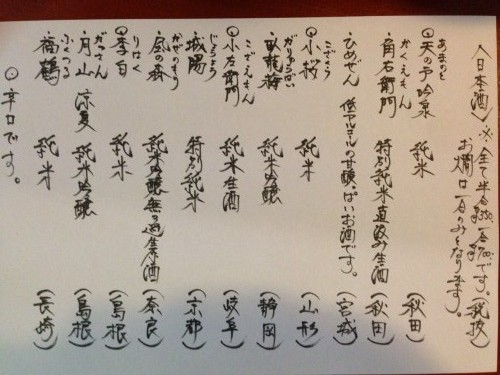 〈日本酒〉※全て半合350、一合700円です。(税抜)
お燗は一合のみとなります。
⊙天の戸 吟泉 純米 (秋田)
あまのと
・角右衛門 特別純米直汲み生酒 (秋田)
かくえもん
・ひめぜん 低アルコールの甘酸っぱいお酒です。 (宮城)
⊙小桜 純米 (山形)
こざくら
・臥龍梅 純米吟醸 (静岡)
がりゅうばい
⊙小左衛門 純米生酒 (岐阜)
こざえもん
・城陽 特別純米 (京都)
じょうよう
・風の森 純米吟醸無ろ過生原酒 (奈良)
かぜのもり
⊙李白 純米 (島根)
りはく
・月山 涼夏 純米吟醸 (島根)
がっさん
・福鶴 純米 (長崎)
ふくつる
⊙辛口です。